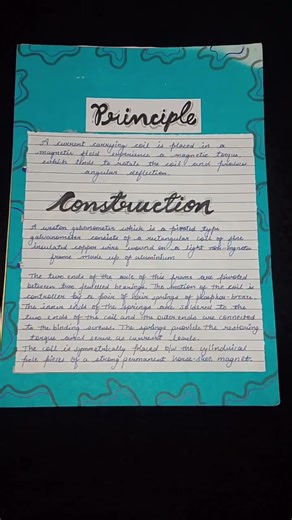 Principle
A current carrying coil is placed in a
magnetic field experience a magnetic torque,
which tends to rotate the coil and produce
angular deflection.
Construction
A weston galvanometer which is a pivoted type
galvanometer consists of a rectangular coil of fine
insulated copper wire wound on a light non-magnetic
frame made up of aluminium
The two ends of the axle of this frame are pivoted
between two jewelled bearings. The motion of the coil is
controlled by a pair of hair springs of phosphor-bronze.
The inner ends of the springs are soldered to the
two ends of the coil and the outer ends are connected
to the binding screws. The springs provide the restoring
torque and serve as current leads.
The coil is symmetrically placed b/w the cylindrical
pole pieces of a strong permanent horse-shoe magnet